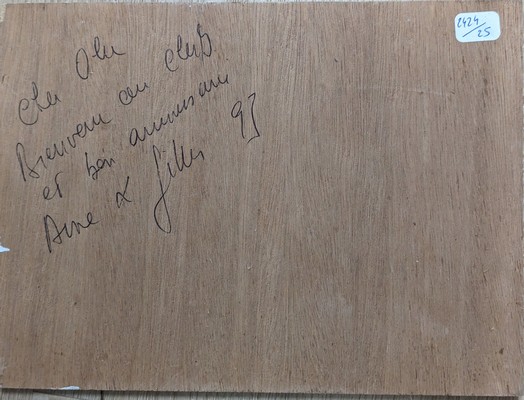 Cher
Bienvenu au club
et bon anniversaire
Anne & Gilles 93
2424/25